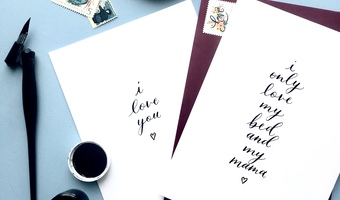 i
love
you
i
only
love
my
bed
and
my
mama